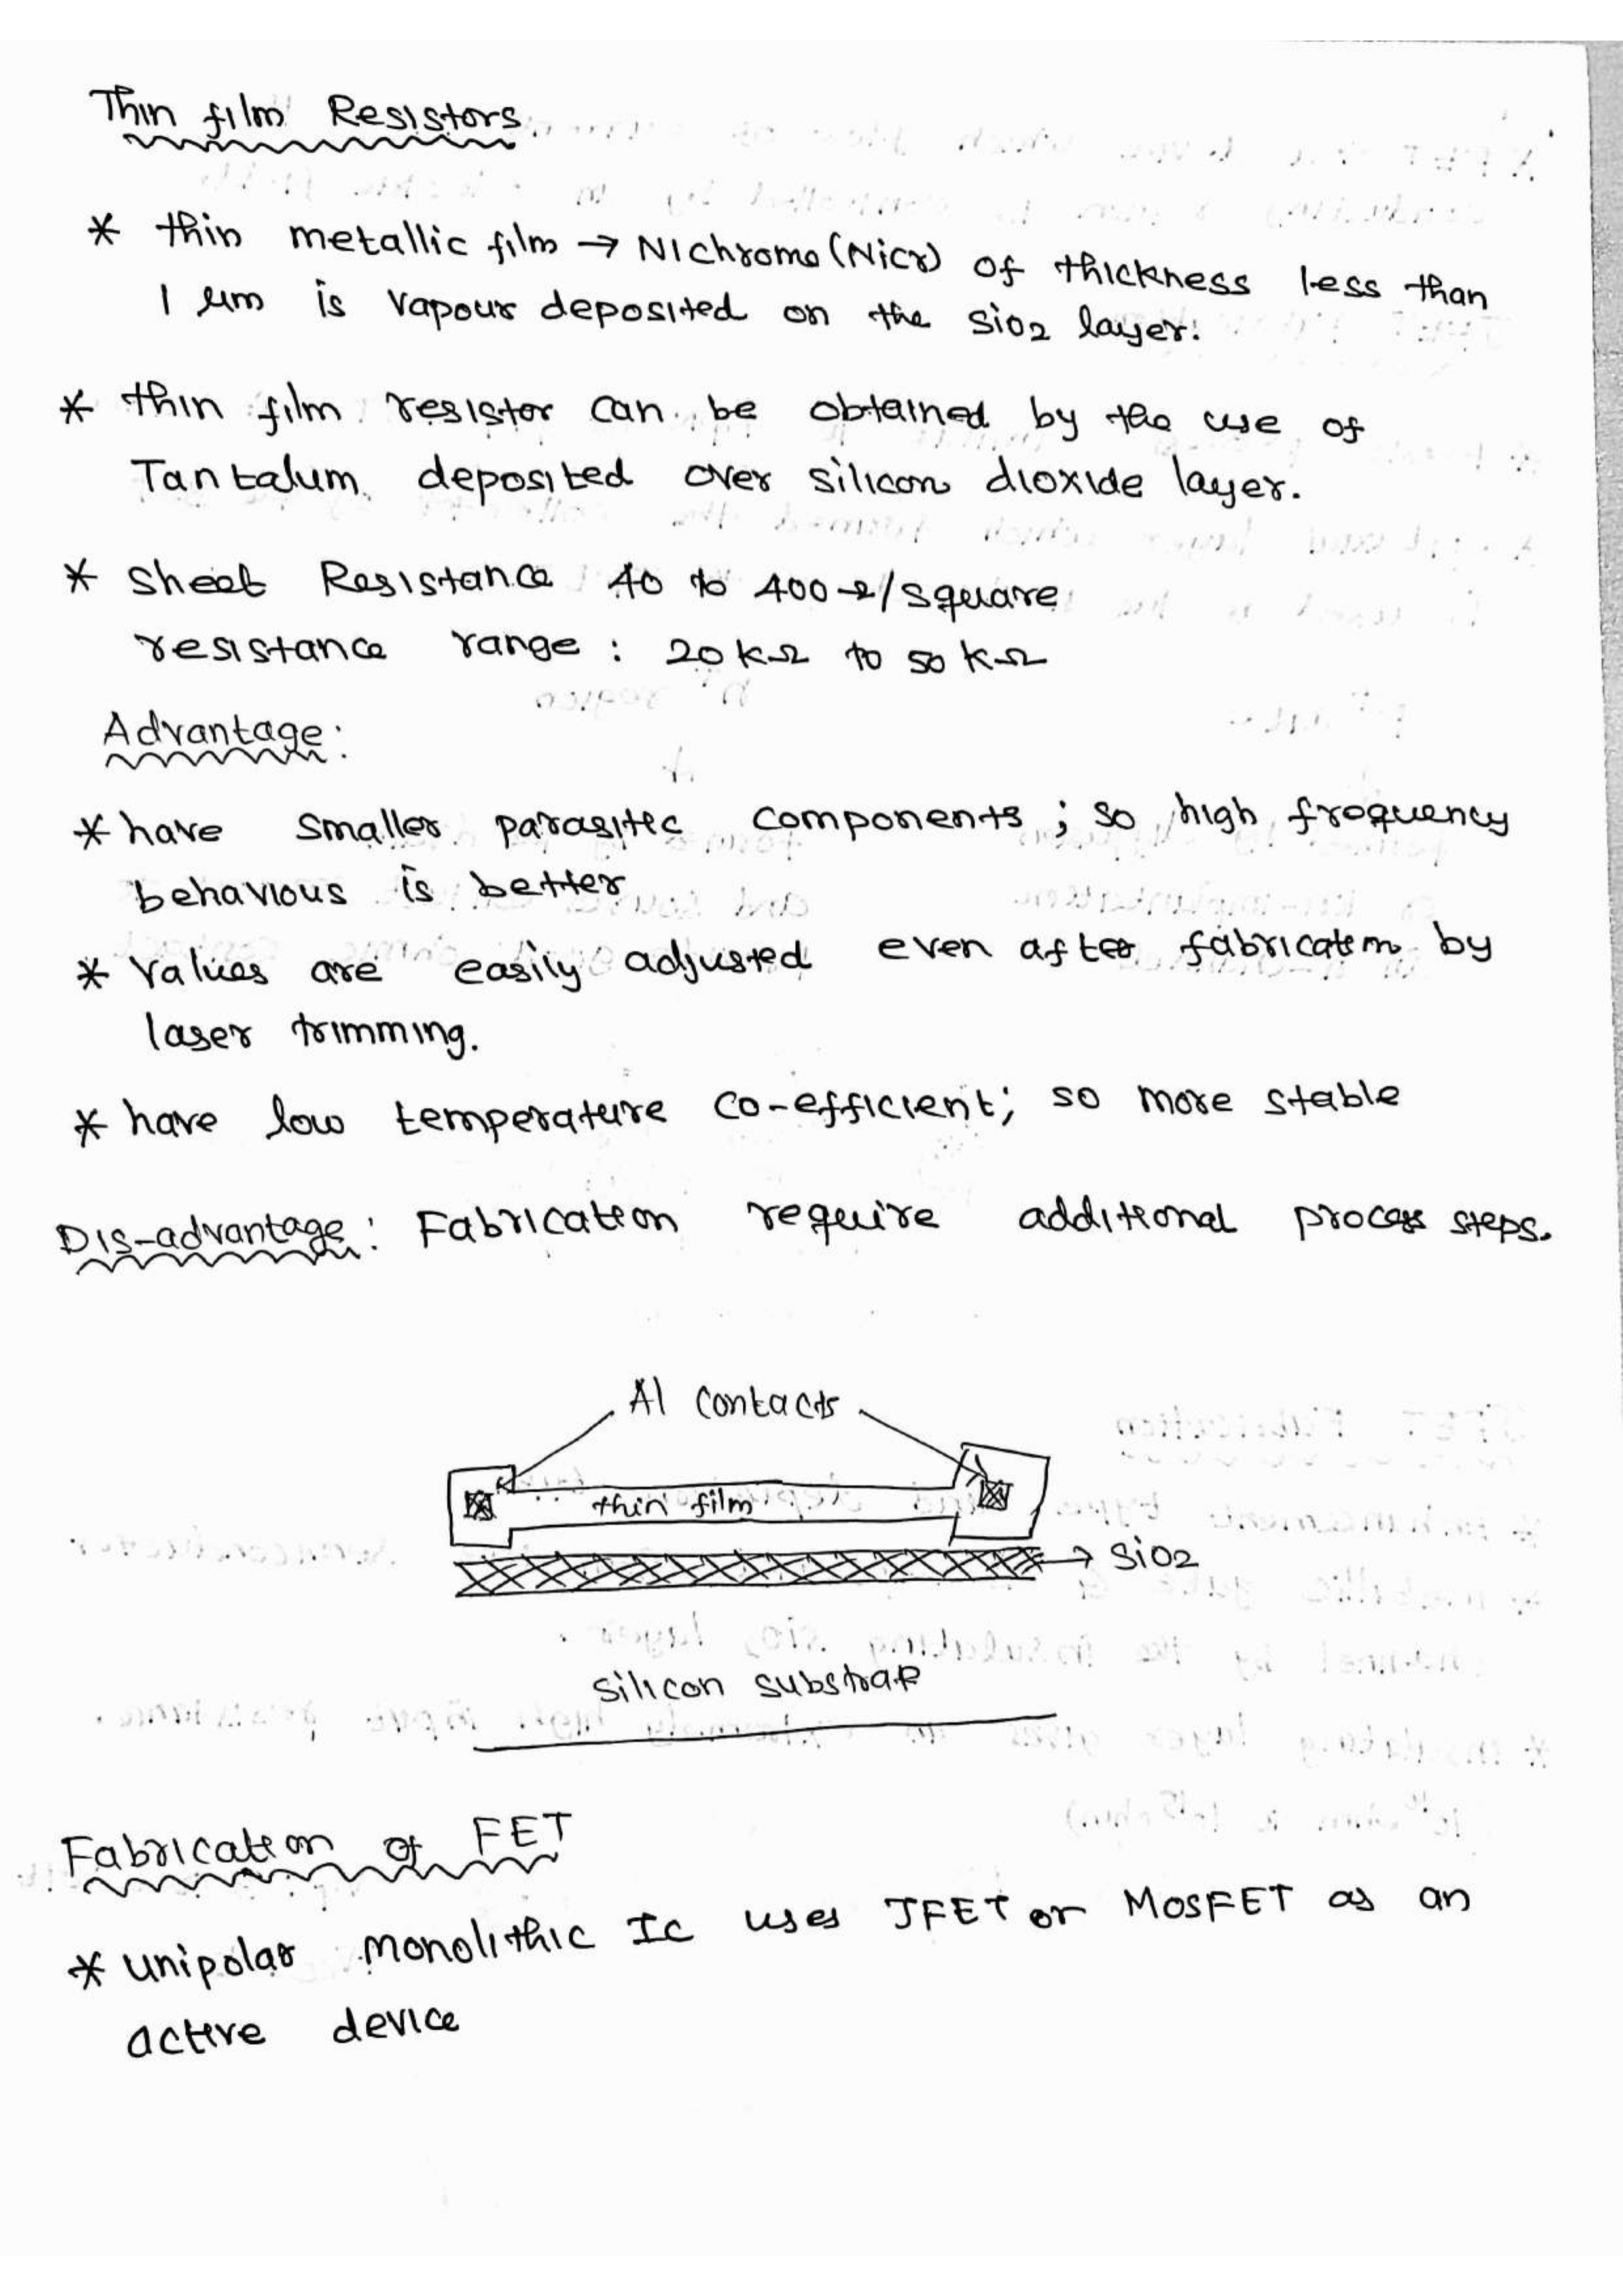 Thin film Resistors
* thin metallic film → Nichrome (NiCr) of thickness less than
1 μm is vapour deposited on the SiO2 layer.
* thin film resistor can be obtained by the use of
Tantalum deposited over silicon dioxide layer.
* Sheet Resistance 40 to 400 Ω/square
resistance range : 20 KΩ to 50 KΩ
Advantage:
* have smaller parasitic components ; so high frequency
behaviour is better
* Values are easily adjusted even after fabrication by
laser trimming.
* have low temperature co-efficient; so more stable
Dis-advantage: Fabrication require additional process steps.
Al contacts
thin film
→ SiO2
silicon substrate
Fabrication of FET
* unipolar monolithic IC uses JFET or MOSFET as an
active device